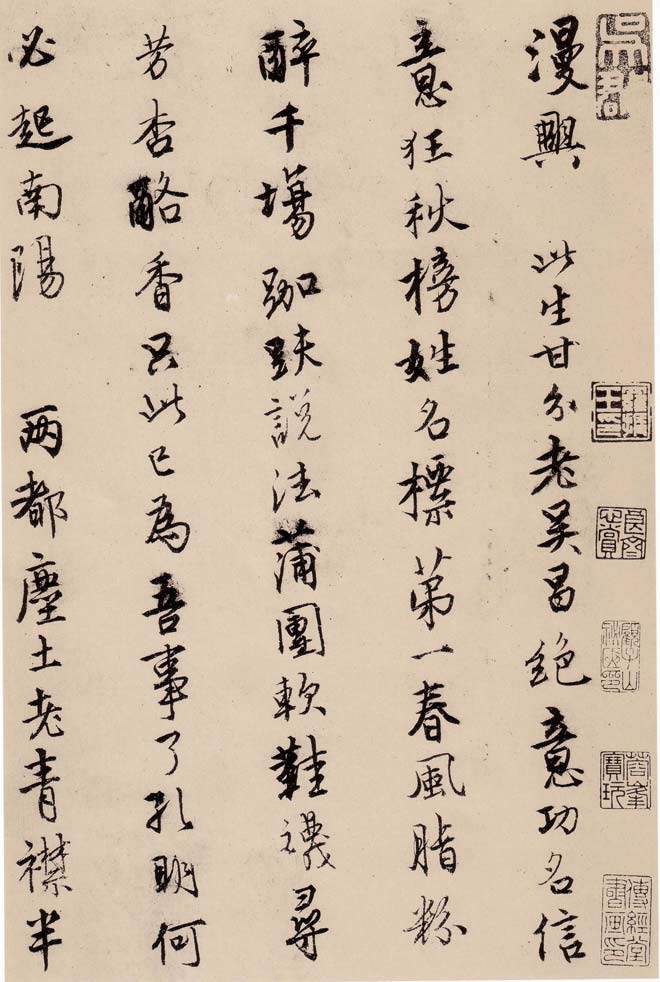 蓉峯寶玩
傳經堂書畫印
漫興 此生甘分老吴昌絕意功名信
意狂秋榜姓名標第一春風脂粉
醉千場跏趺說法蒲團軟鞋襪尋
芳杏酪香只此已為吾事了孔明何
必起南陽 两都塵土老青襟半